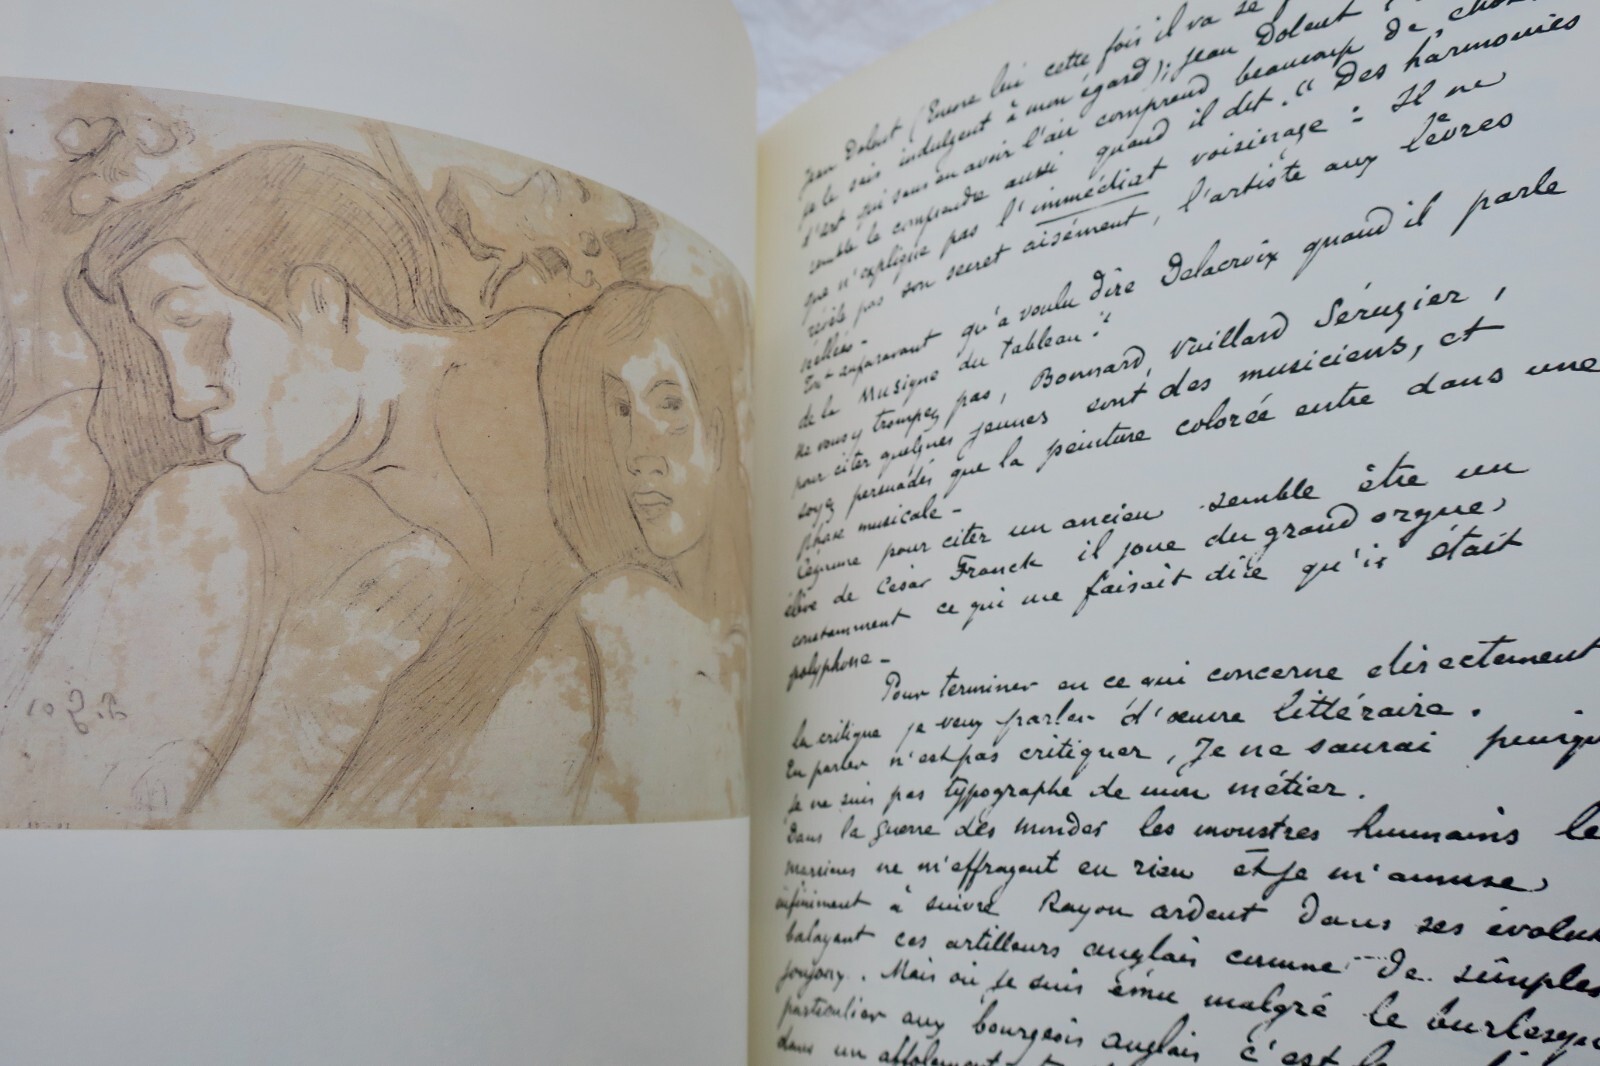 Jean Dolent (Encore lui cette fois il va se
je le sais indulgent à mon égard); Jean Dolent
d'art qui sans en avoir l'air comprend beaucoup de choses
semble le comprendre aussi quand il dit. "Des harmonies
que n'explique pas l'immédiat voisinage: Il ne
révèle pas son secret aisément, l'artiste aux lèvres
scellées-
Tout auparavant qu'a voulu dire Delacroix quand il parle
de la Musique du tableau?"
Ne vous y trompez pas, Bonnard, Vuillard Sérugier,
pour citer quelques jeunes sont des musiciens, et
soyez persuadés que la peinture colorée entre dans une
phase musicale-
Cézanne pour citer un ancien semble être un
élève de César Franck il joue du grand orgue,
constamment ce qui me faisait dire qu'il était
polyphone-
Pour terminer en ce qui concerne directement
la critique je veux parler d'œuvre littéraire.
En parler n'est pas critiquer, Je ne saurai
je ne suis pas typographe de mon métier.
Dans la guerre des mondes les monstres humains
marsiens ne m'effrayent en rien et je m'amuse
infiniment à suivre Rayon ardent dans ses
balayant ces artilleurs anglais comme de simples
joujoux. Mais où je suis ému malgré le
particulier aux bourgeois anglais c'est
dans un affolement